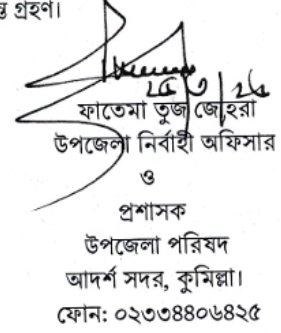 গ্রহণ।
ফাতেমা তুজ জোহরা
উপজেলা নির্বাহী অফিসার
ও
প্রশাসক
উপজেলা পরিষদ
আদর্শ সদর, কুমিল্লা।
ফোন: ০২৩৩৪৪০৬৪২৫